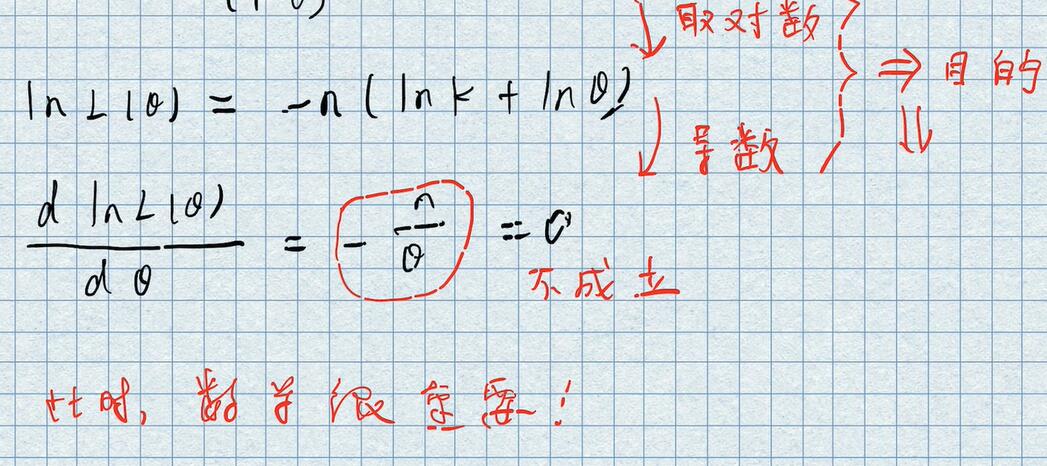 取对数
ln L(θ) = -n (ln k + ln θ)
⇒ 目的
导数
d ln L(θ) / d θ = - n/θ = 0
不成立
此时, 数学很重要!